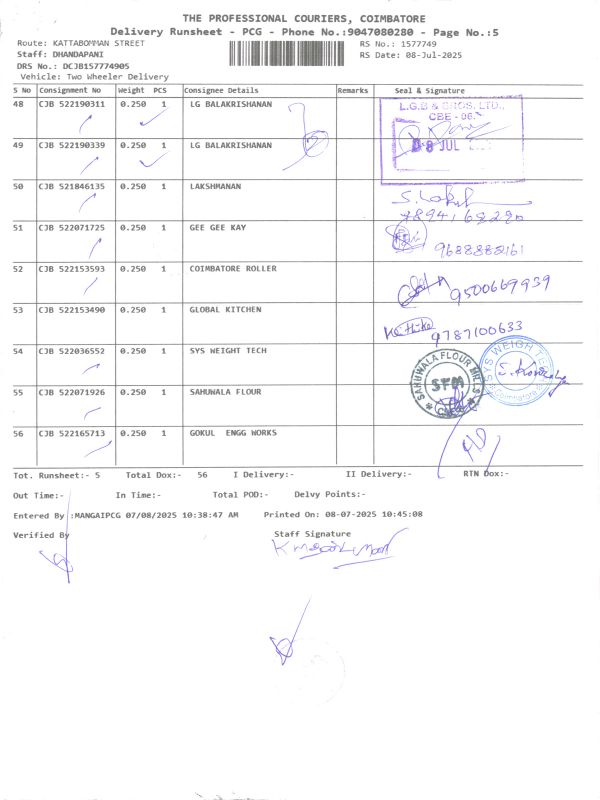 THE PROFESSIONAL COURIERS, COIMBATORE
Delivery Runsheet - PCG - Phone No.:9047080280 - Page No.:5
Route: KATTABOMMAN STREET RS No.: 1577749
Staff: DHANDAPANI RS Date: 08-Jul-2025
DRS No.: DCJB157774905
Vehicle: Two Wheeler Delivery
S No Consignment No Weight PCS Consignee Details Remarks Seal & Signature
48 CJB 522190311 0.250 1 LG BALAKRISHANAN
L.G.B & BROS. LTD.,
CBE - 06.
49 CJB 522190339 0.250 1 LG BALAKRISHANAN
08 JUL
50 CJB 521846135 0.250 1 LAKSHMANAN
51 CJB 522071725 0.250 1 GEE GEE KAY
52 CJB 522153593 0.250 1 COIMBATORE ROLLER
9500669939
53 CJB 522153490 0.250 1 GLOBAL KITCHEN
9787100633
54 CJB 522036552 0.250 1 SYS WEIGHT TECH
SYS WEIGH TECH
SAHUWALA FLOUR MILLS
SFM
55 CJB 522071926 0.250 1 SAHUWALA FLOUR
56 CJB 522165713 0.250 1 GOKUL ENGG WORKS
Tot. Runsheet:- 5 Total Dox:- 56 I Delivery:- II Delivery:- RTN Dox:-
Out Time:- In Time:- Total POD:- Delvy Points:-
Entered By :MANGAIPCG 07/08/2025 10:38:47 AM Printed On: 08-07-2025 10:45:08
Verified By Staff Signature